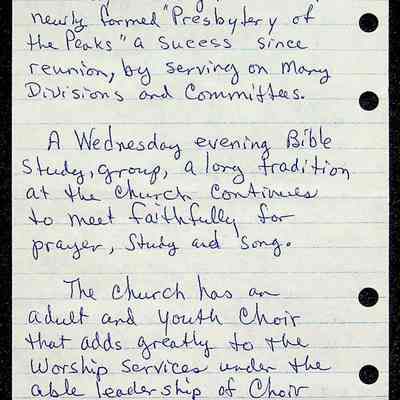 newly formed "Presbytery of
the Peaks" a sucess since
reunion, by serving on many
Divisions and Committees.
A Wednesday evening Bible
Study, group, a long tradition
at the church continues
to meet faithfully for
prayer, Study and Song.
The church has an
adult and youth Choir
that adds greatly to the
Worship Services under the
able leadership of Choir